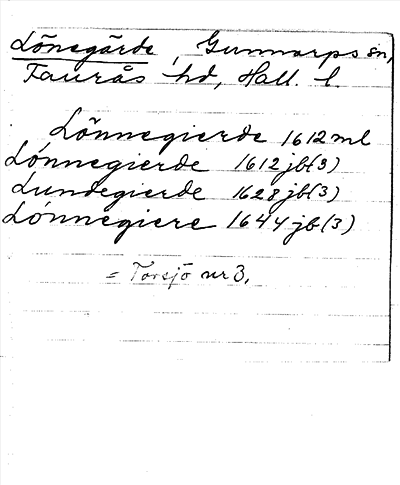 Lönegärde, Gunnarps sn,
Faurås hd, Hall. l.
Lönnegierde 1612 ml
Lónnegierde 1612 jb(3)
Lundegierde 1628 jb(3)
Lónnegiere 1644 jb(3)
= Torsjö nr 3.